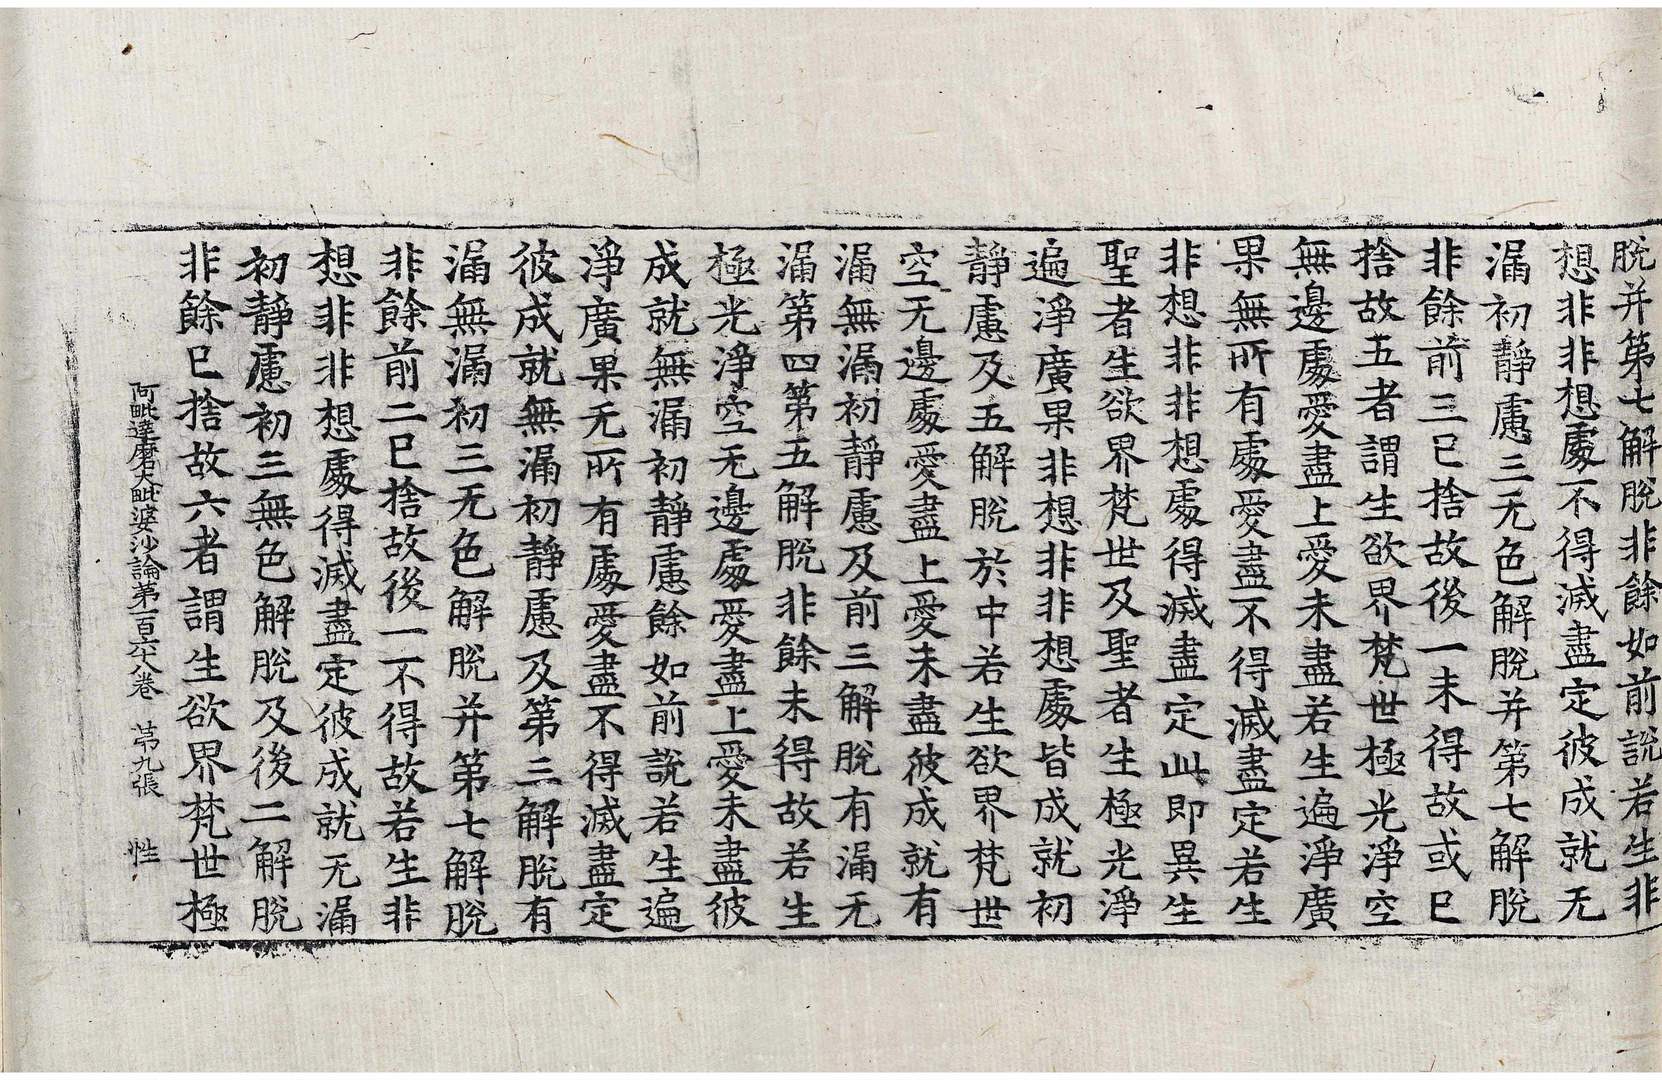 脫并第七解脫非餘如前說若生非
想非非想處不得滅盡定彼成就无
漏初靜慮三无色解脫并第七解脫
非餘前三已捨故後一未得故或已
捨故五者謂生欲界梵世極光淨空
無邊處愛盡上愛未盡若生遍淨廣
果無所有處愛盡不得滅盡定若生
非想非非想處得滅盡定此即異生
聖者生欲界梵世及聖者生極光淨
遍淨廣果非想非非想處皆成就初
靜慮及五解脫於中若生欲界梵世
空无邊處愛盡上愛未盡彼成就有
漏無漏初靜慮及前三解脫有漏无
漏第四第五解脫非餘未得故若生
極光淨空无邊處愛盡上愛未盡彼
成就無漏初靜慮餘如前說若生遍
淨廣果无所有處愛盡不得滅盡定
彼成就無漏初靜慮及第三解脫有
漏無漏初三无色解脫并第七解脫
非餘前二已捨故後一不得故若生非
想非非想處得滅盡定彼成就无漏
初靜慮初三無色解脫及後二解脫
非餘已捨故六者謂生欲界梵世極
阿毗達磨大毗婆沙論第一百六十八卷　第九張　性